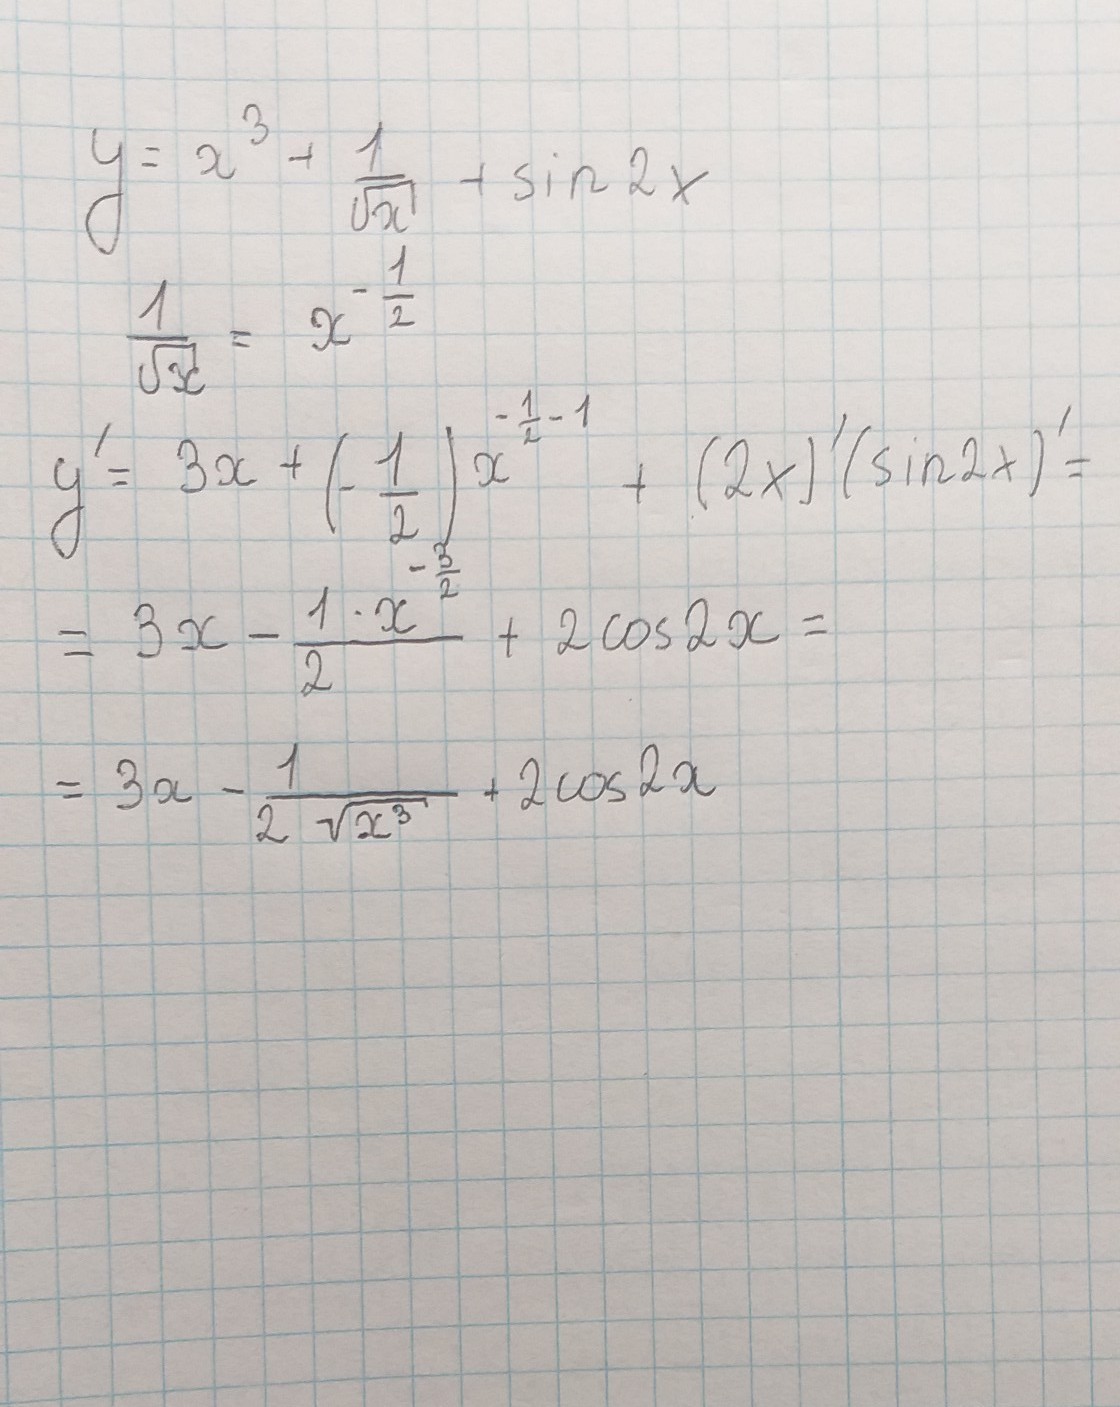 y = x³ + 1/√x + sin 2x
1/√x = x^(-1/2)
y' = 3x + (-1/2) x^(-1/2 - 1) + (2x)'(sin 2x)' =
= 3x - (1 · x^(-3/2))/2 + 2cos2x =
= 3x - 1/(2√x³) + 2cos2x